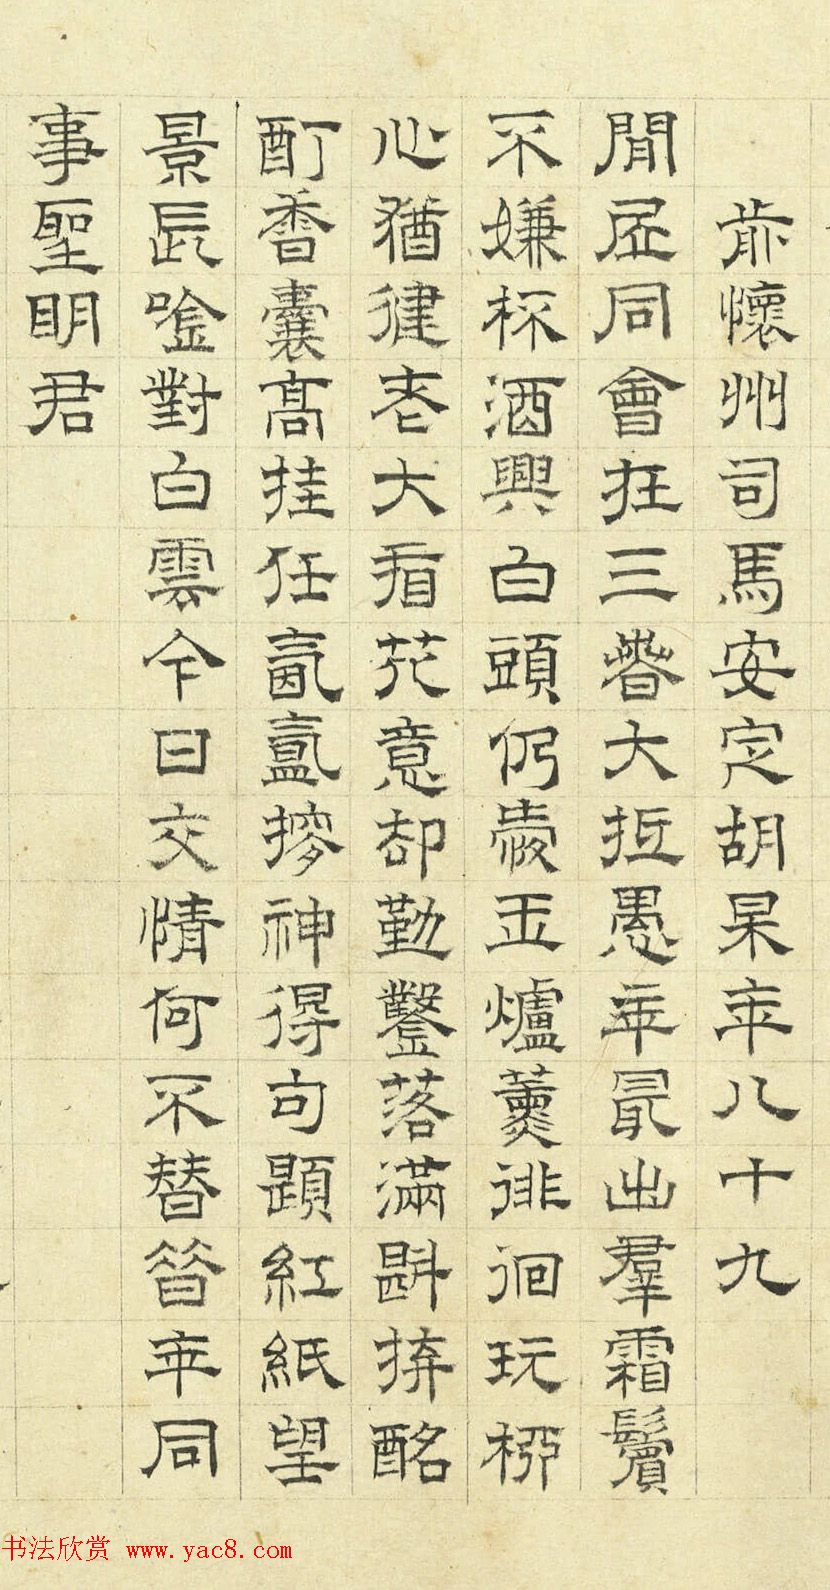 前懷州司馬安定胡杲年八十九
閒居同會在三春大抵愚年最出羣霜鬢
不嫌杯酒興白頭仍愛玉爐薰徘徊玩柳
心猶健老大看花意却勤鑿落滿斟拚酩
酊香囊高挂任氤氳搜神得句題紅紙望
景長唫對白雲今日交情何不替齊年同
事聖明君
书法欣赏 www.yac8.com